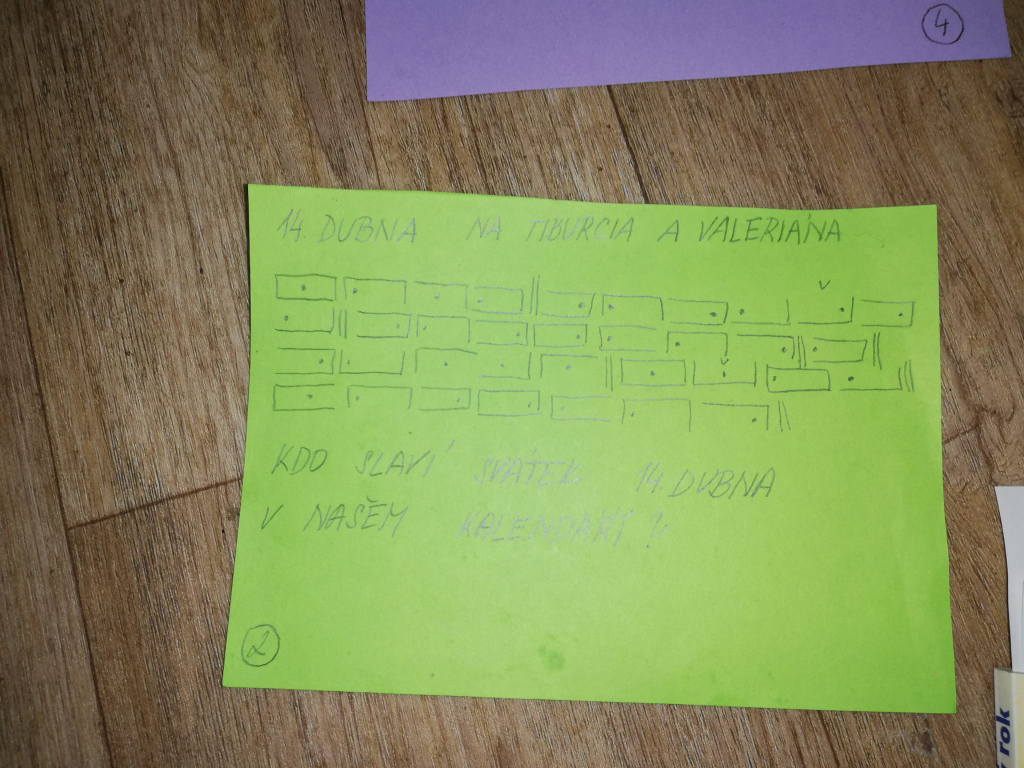 4
14. DUBNA NA TIBURCIA A VALERIÁNA
KDO SLAVÍ SVÁTEK 14. DUBNA
V NAŠEM KALENDÁŘI?
2
rok